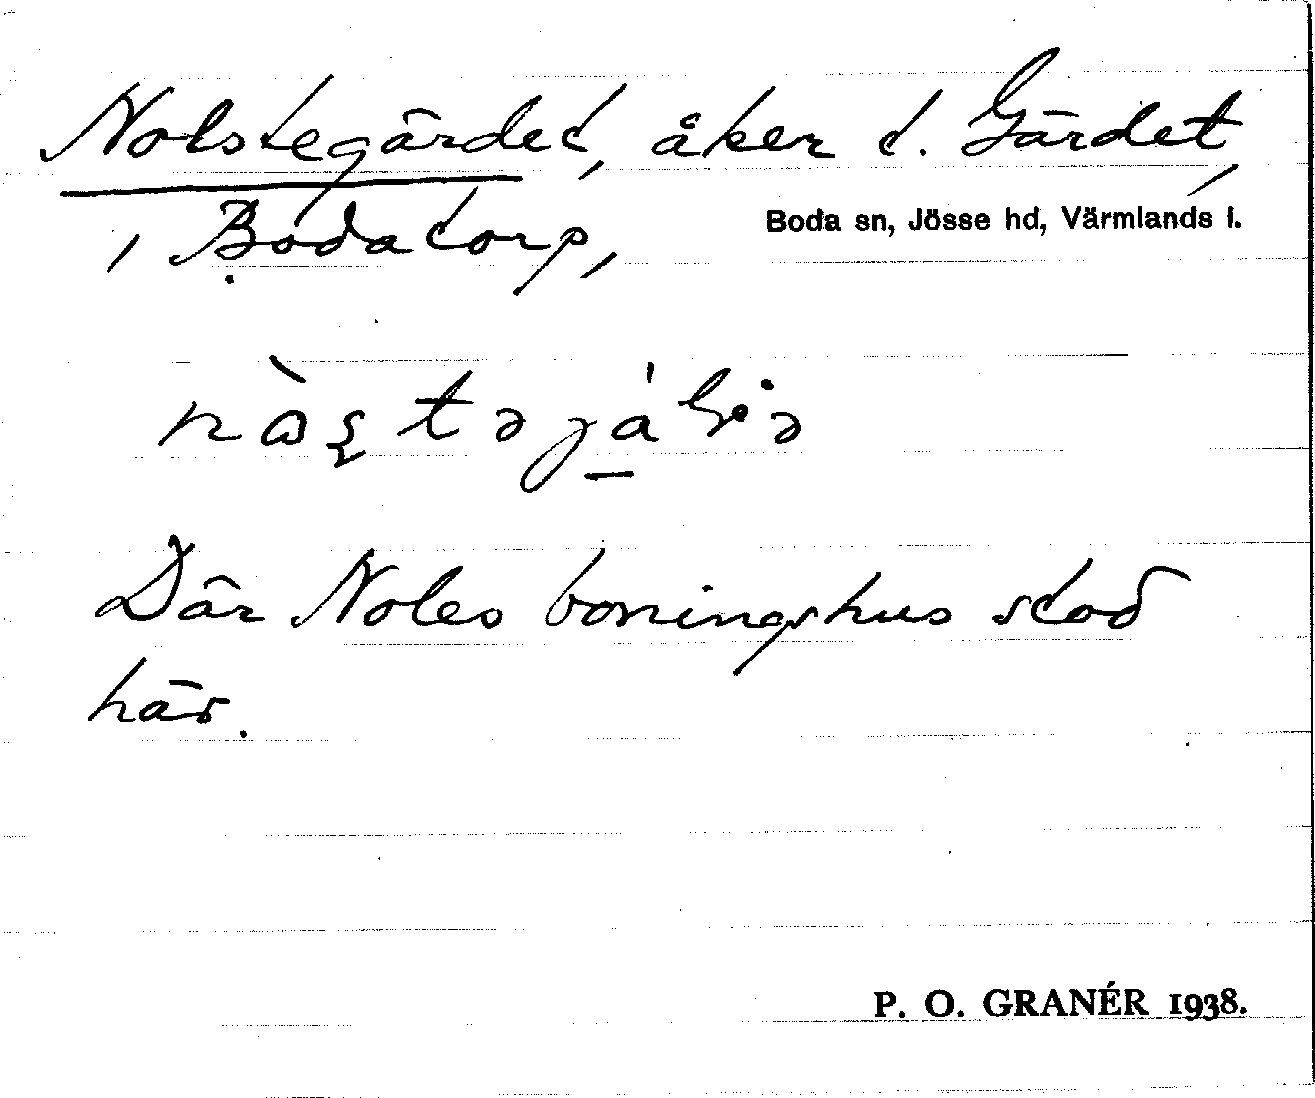 Nolstegärdet, åker t. Gärdet,
i Bodatorp,
Boda sn, Jösse hd, Värmlands l.
Där Noles boningshus stod
här.
P. O. GRANÉR 1938.